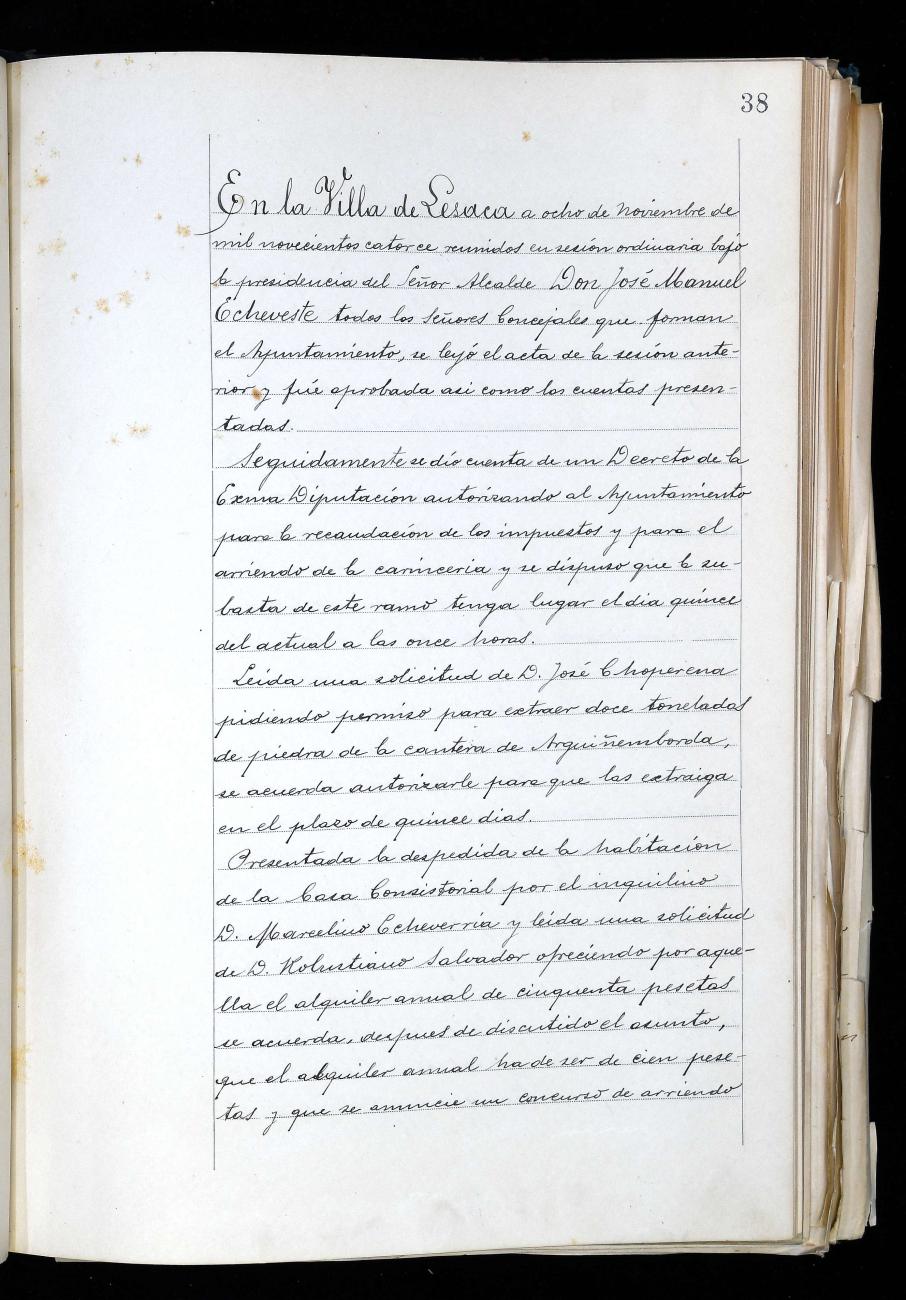 38
En la Villa de Lesaca a ocho de noviembre de
mil novecientos catorce reunidos en sesión ordinaria bajo
la presidencia del Señor Alcalde Don José Manuel
Echeveste todos los Señores Concejales que forman
el Ayuntamiento, se leyó el acta de la sesión ante-
rior y fué aprobada asi como las cuentas presen-
tadas.
Seguidamente se dio cuenta de un Decreto de la
Exma Diputación autorizando al Ayuntamiento
para la recaudación de los impuestos y para el
arriendo de la carniceria y se dispuso que la su-
basta de este ramo tenga lugar el dia quince
del actual a las once horas.
Leida una solicitud de D. José Choperena
pidiendo permiso para extraer doce toneladas
de piedra de la cantera de Arguiñemborda,
se acuerda autorizarle para que las extraiga
en el plazo de quince dias.
Presentada la despedida de la habitación
de la Casa Consistorial por el inquilino
D. Marcelino Echeverria y leida una solicitud
de D. Salvador ofreciendo por aque-
lla el alquiler annal de cinquenta pesetas
se acuerda, despues de discutido el asunto,
que el alquiler annal ha de ser de cien pese-
tas y que se anuncie un concurso de arriendo